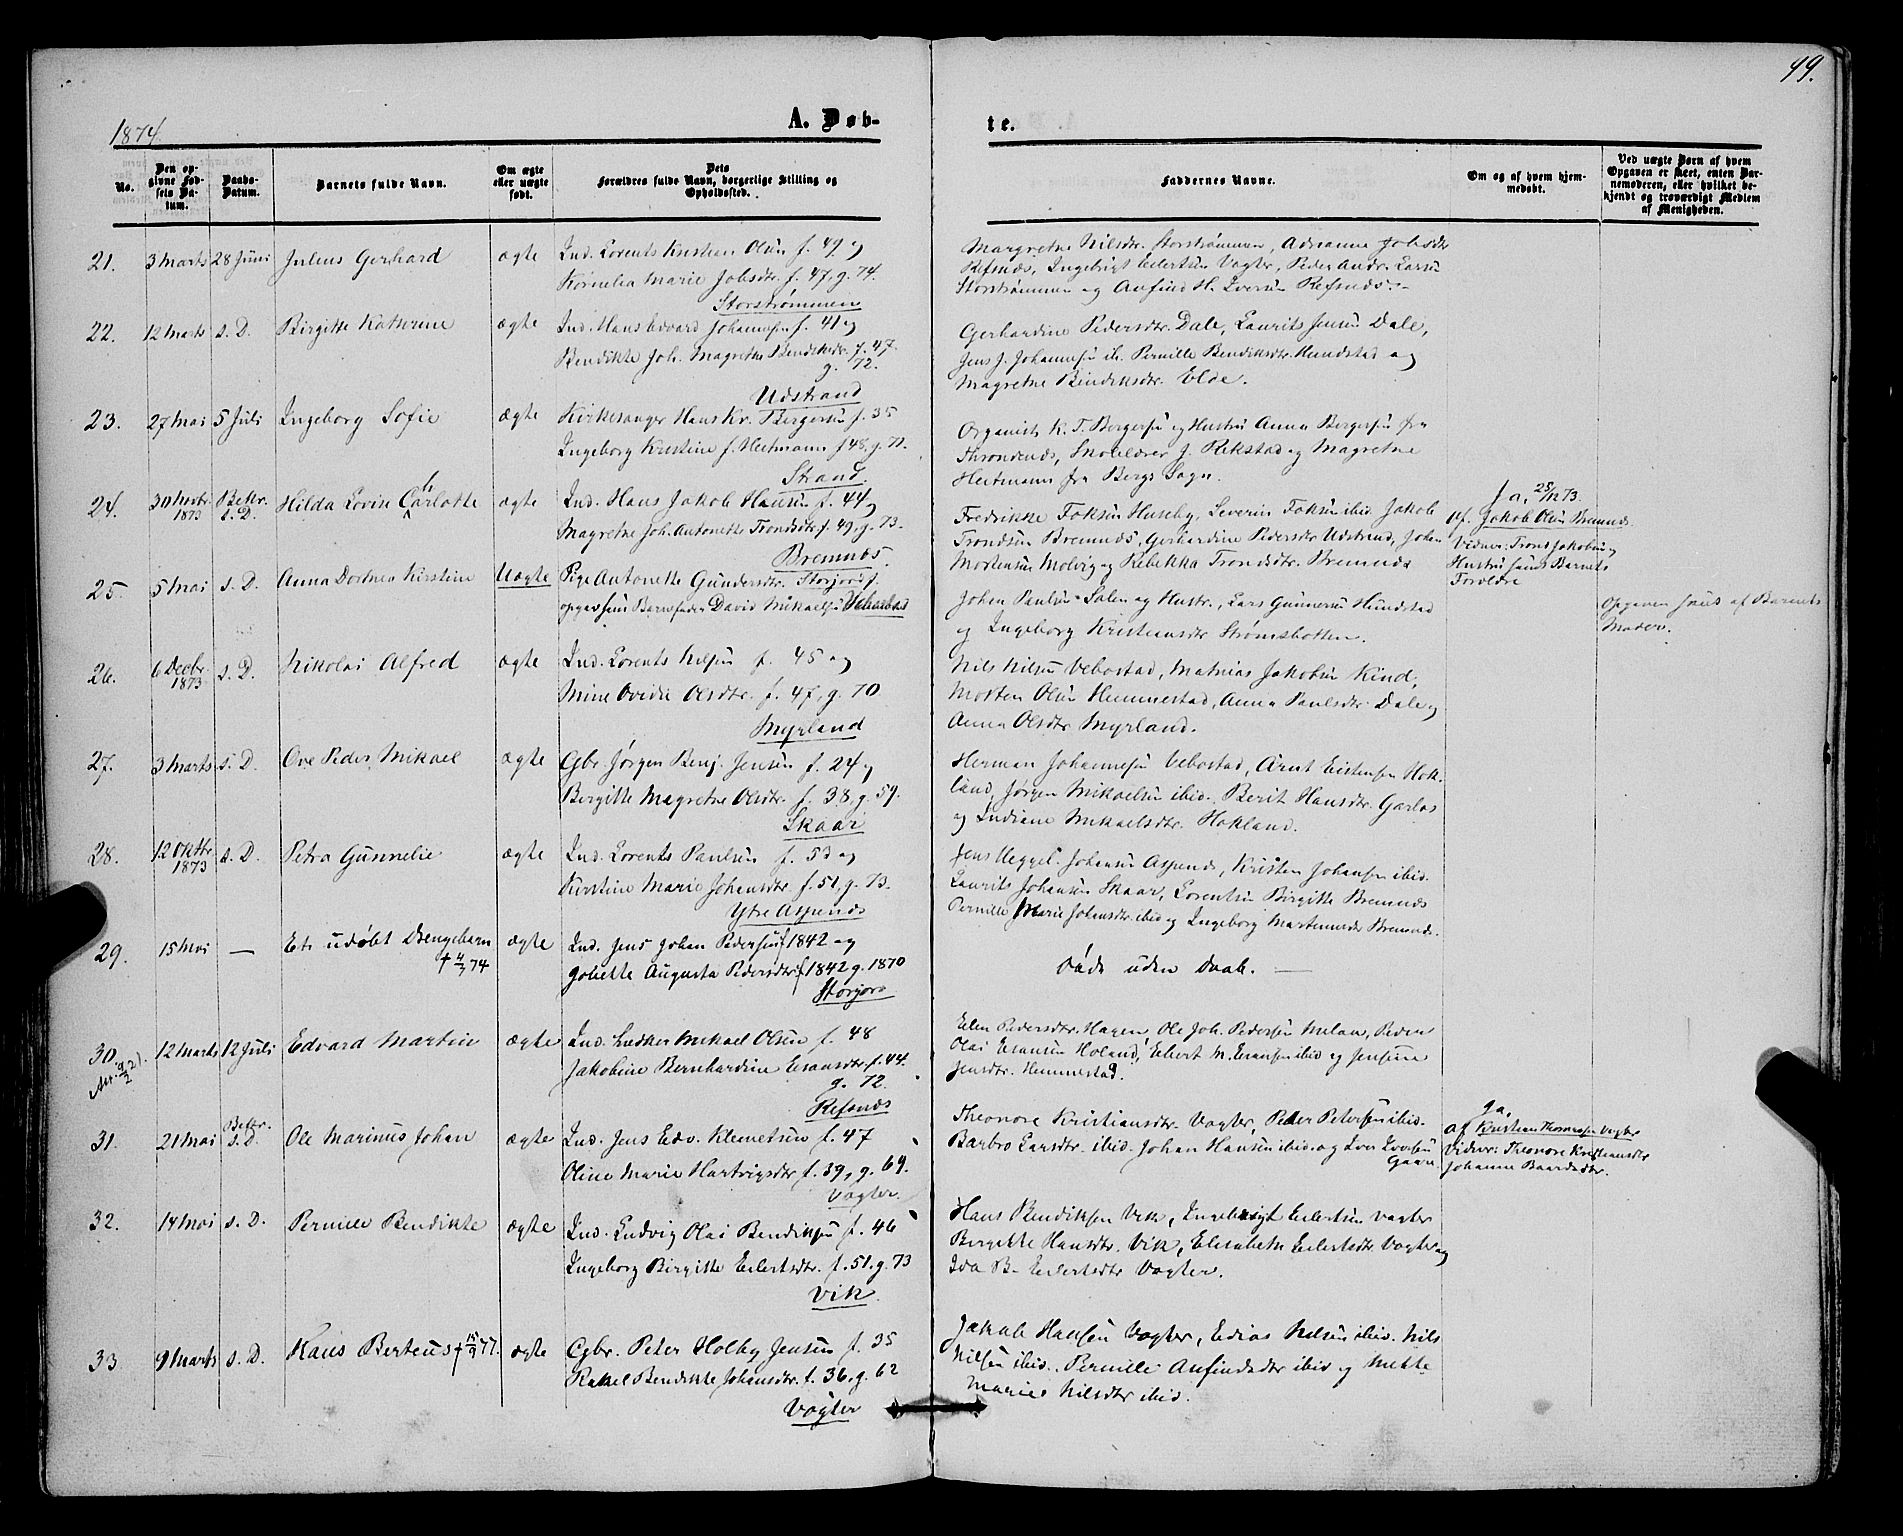 49.
1874.
A. Døb-
te.
No.
Den op-
givne Fød-
sels Da-
tum.
Daabs-
Datum.
Barnets fulde Navn.
Om ægte
eller uægte
født.
Dets
Forældres fulde Navn, borgerlige Stilling og
Opholdssted.
Faddernes Navne.
Om og af hvem hjem-
medøbt.
Ved uægte Børn af hvem
Opgaven er skeet, enten Bar-
nemoderen, eller hvilket be-
kjendt og troværdigt Medlem
af Menigheden.
21. 3 Marts 28 Juni Julius Gerhard ægte Ind. Lorents Kristian Olsen f. 49 og
Kornelia Marie Jobsdtr. f. 47, g. 74.
Storstrømmen
Margrethe Nilsdtr. Storstrømmen, Adrianna Jobsdtr
Refsnæs, Ingebrigt Eilertsen Vogter, Peder Andr. Larsen
Storstrømmen og Anfind H. Iversen Refsnæs.
22. 12 Marts s. D. Birgitte Katrine ægte Ind. Hans Edvard Johannesen f. 41 og
Bendikte Joh. Magrethe Bendiksdtr. f. 47.
g. 72.
Udstrand
Gerhardine Pedersdtr. Dale, Laurits Jensen Dale,
Jens J. Johannesen ib. Pernille Bendiksdtr. Hundstad og
Magrethe Bendiksdtr. Elde.
23. 27 Mai 5 Juli Ingeborg Sofie ægte Kirkesanger Hans Kr. Bergersen f. 35
Ingeborg Kristine f. Heitmann f 48, g. 72.
Strand.
Organist K. T. Bergersen og Hustru Anna Bergersen fra
Throndenæs, Skolelærer J. Rekstad og Magrethe
Heitmann fra Bergs Sogn.
24. 30 Novbr. 1873 Bekr. s. D. Hilda Lovise Carlotte ægte Ind. Hans Jakob Hansen f. 44 og
h
Magrethe Joh. Antonette Trondsdtr. f. 49, g. 73.
Bremnæs.
Fredrikke Foksen Huseby, Severin Foksen ibid. Jakob
Trondsen Bremnæs, Gerhardine Pedersdtr Udstrand, Johan
Mortensen Molvig og Rebekka Trondsdtr. Bremnæs
Ja, 28/12 73.
af. Jakob Olsen Bremnæs.
Vidner: Trond Jakobsen og
Hustru samt Barnets
Forældre
25. 5 Mai s. D. Anna Dorthea Kirstine Uægte Pige Antonette Gundersdtr. Storjord f.
opgiv som Barnefader David Mikaelsen Vebostad
Johan Paulsen Salen og Hustr., Lars Gunnersen Hundstad
og Ingeborg Kristiansdtr Strømsbotten.
Opgaven skeet af Barnets
Moder.
26. 6 Decbr. 1873 s. D. Nikolai Alfred ægte Ind. Lorents Nilsen f. 45 og
Mine Ovidie Olsdtr. f. 47, g. 70
Myrland
Nils Nilsen Vebostad, Mathias Jakobsen Kind,
Morten Olsen Hemmestad, Anna Paulsdtr. Dale og
Anna Olsdtr Myrland.
27. 3 Marts s. D. Ove Peder Mikael ægte Gbr. Jørgen Benj. Jensen f. 24 og
Birgitte Magrethe Olsdtr. f. 38, g. 59.
Skaar
Herman Johannesen Vebostad, Arnt Eistensen Hok-
land, Jørgen Mikaelsen ibid. Berit Hansdtr. Garlas
og Indiane Mikaelsdtr. Hokland.
28. 12 Oktbr. 1873 s. D. Petra Gunnelie ægte Ind. Lorents Paulsen f. 53 og
Kirstine Marie Johansdtr f. 51, g. 73.
Ytre Aspenæs
Jens Heggel. Johansen Aspenæs, Kristen Johansen ibid.
Laurits Johansen Skaar, Lorentsen Birgitte Bremnæs
Pernille Marie Johansdtr. ibid og Ingeborg Martensdtr Bremnæs.
29. 15 Mai — Et udøbt Drengebarn ægte Ind. Jens Johan Pedersen f 1842 og
† 4/7 74
Joliette Augusta Pedersdtr f 1842 g. 1870
Storjord
Døde uden Daab. —
30. 12 Marts 12 Juli Edvard Martin ægte Ind. Ludker Mikael Olsen f. 48
Att. 9/2 21.
Jakobine Bernhardine Esaasdtr. f. 44.
g. 72.
Refsnæs
Elen Pedersdtr. Hagen, Ole Joh. Pedersen Melan, Peder
Olai Esaasen Holand, Eilert M. Esaasen ibid og Jensine
Jensdtr. Hemmestad.
31. 21 Mai Bekr. s. D. Ole Marinus Johan ægte Ind. Jens Edv. Klemetsen f. 47
Oline Marie Hartvigsdtr f. 39, g. 69.
Vogter
Theonore Kristiansdtr. Vogter, Peder Petersen ibid.
Barbro Larsdtr. ibid. Johan Hansen ibid. og Iver Iversen
Gaare
Ja,
af Kristian Thomassen Vogter
Vidner: Theonore Kristiansdtr
Johanna Baardsdtr.
32. 14 Mai s. D. Pernille Bendikte ægte Ind. Ludvig Olai Bendiksen f. 46
Ingeborg Birgitte Eilertsdtr. f. 51. g. 73
Vik.
Hans Bendiksen Vik, Ingebrigt Eilertsen Vogter
Birgitte Hansdtr. Vik, Elisabeth Eilertsdtr. Vogter og
Ida B. Eilertsdtr Vogter.
33 9 Marts s. D. Kaus Berteus † 15/9 77. ægte Gbr. Peter Holby Jensen f. 35
Rakel Bendikte Johansdtr. f. 36, g. 62
Vogter
Jakob Hansen Vogter, Edias Nilsen ibid. Nils
Nilsen ibid. Pernille Anfindsdtr ibid og Mette
Marie Nilsdtr ibid.